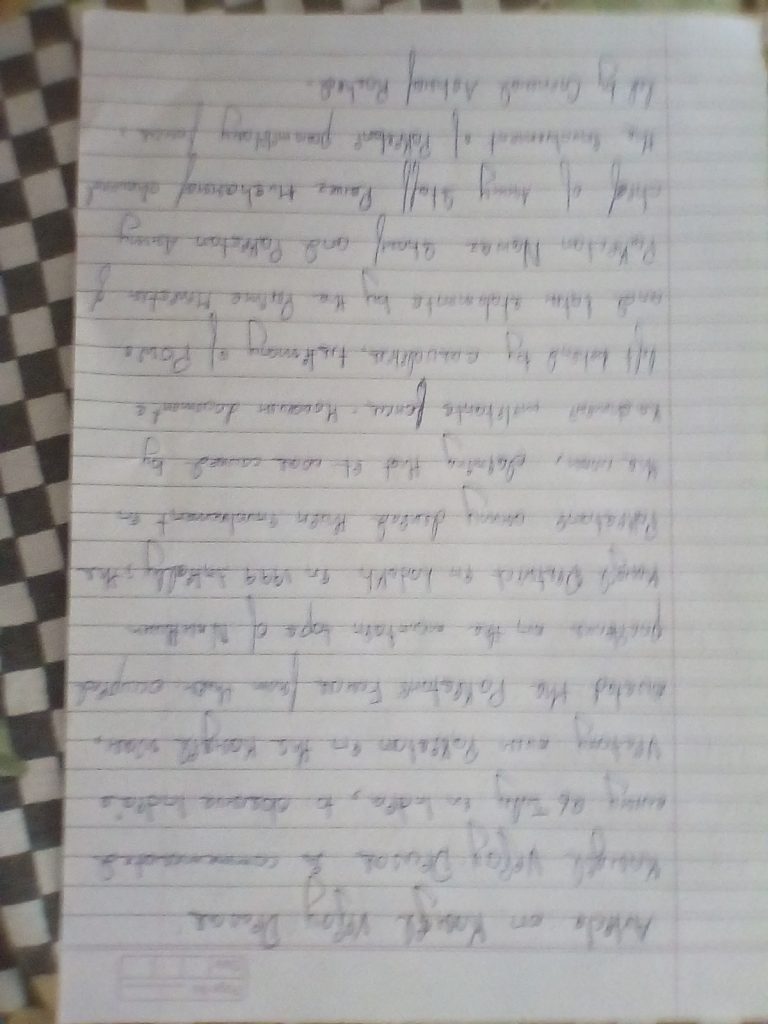 Article on Kargil Vijay Diwas
Kargil Vijay Diwas is commemorated
every 26 July in India, to observe India's
Victory over Pakistan in the Kargil war,
ousted the Pakistani Forces from their occupied
positions on the mountain tops of Northern
Kargil District in Ladakh in 1999 Initially, the
Pakistani army denied their involvement in
the war, claiming that it was caused by
Kashmiri militants forces. However documents
left behind by casualties, testimony of POWs
and later statements by the Prime Minister of
Pakistan Nawaz Sharif and Pakistan Army
chief of Army Staff Parvez Musharraf showed
the involvement of Pakistani paramilitary forces,
led by General Ashraf Rashid.